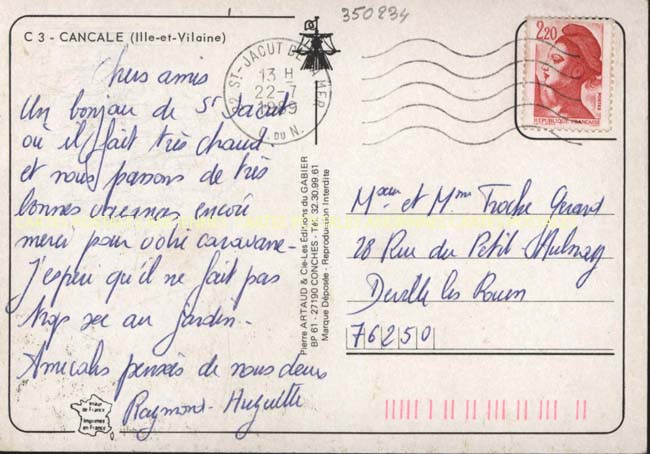 C 3 - CANCALE (Ille-et-Vilaine)
350234
Chers amis
Un bonjour de St Jacut
où il fait très chaud.
et nous passons de très
bonnes vacances encore
merci pour votre caravane -
J'espère qu'il ne fait pas
trop sec au jardin -
Amicales pensées de nous deux
Raymond - Huguette
22 ST-JACUT DE LA MER
13 H
22-7
1989
C. DU N.
2,20
REPUBLIQUE FRANÇAISE
Pierre ARTAUD & Cie-Les Editions du GABIER
BP 61 - 27190 CONCHES - Tél. 32.30.99.61
Marque Déposée - Reproduction Interdite
Mseur et Mme Troche Gérard
28 Rue du Petit Aulnay
Deville les Rouen
76250
Imprimée
en France